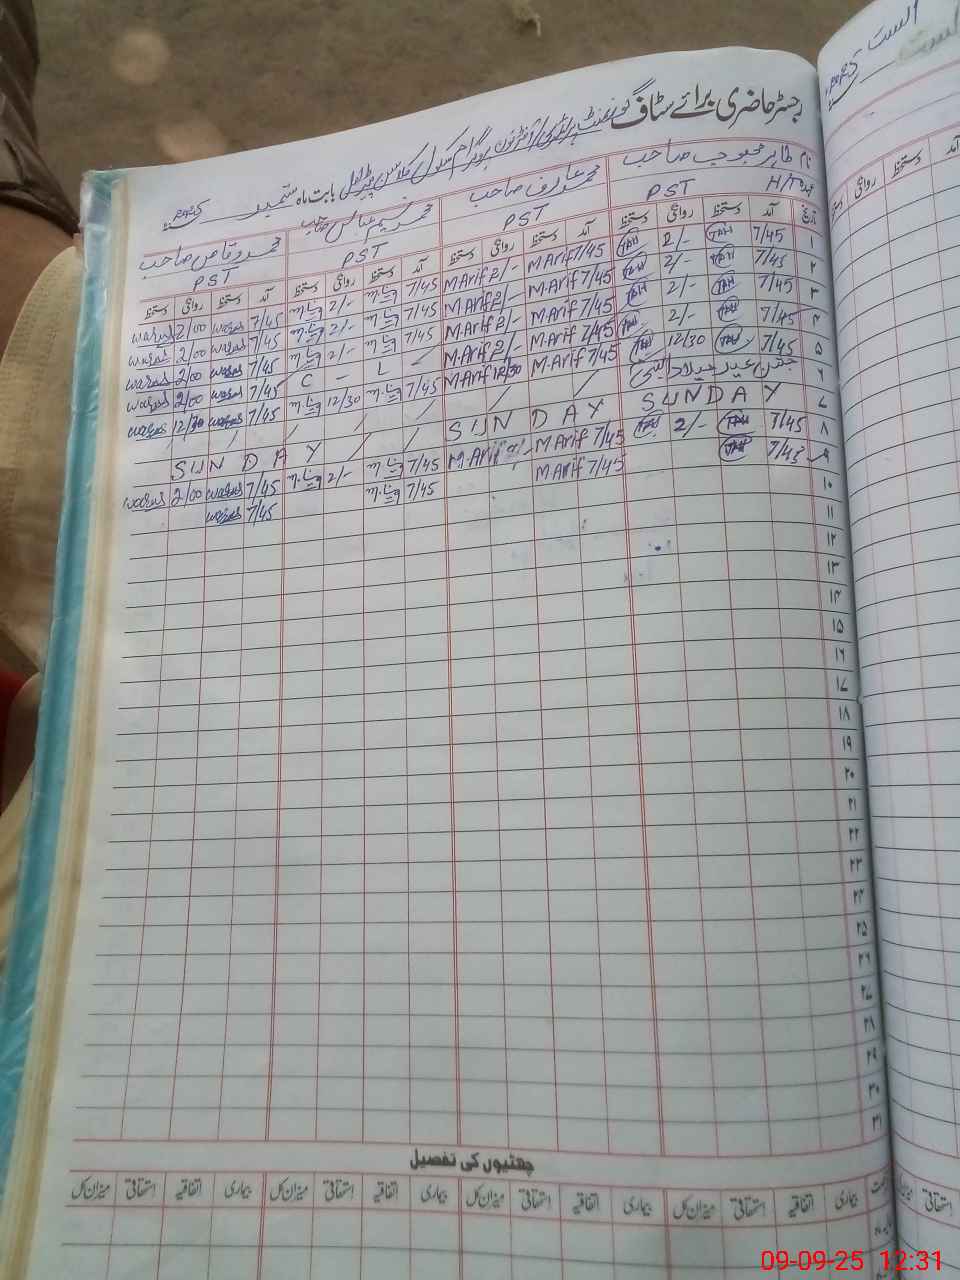 رجسٹر حاضری برائے سٹاف گورنمنٹ پرائمری
بابت ماہ ستمبر 2025ء
نام طاہر محبوب صاحب محمد عارف صاحب محمد وقاص صاحب
عہدہ H/T PST PST PST PST
تاریخ آمد دستخط روانگی دستخط آمد دستخط روانگی دستخط آمد دستخط روانگی دستخط آمد دستخط روانگی دستخط
۱ 7/45 TAH 2/- TAH 7/45 M Arif 2/- M Arif 7/45 2/- 7/45 waqas 2/00 waqas
۲ 7/45 TAH 2/- TAH 7/45 M Arif 2/- M Arif 7/45 2/- 7/45 waqas 2/00 waqas
۳ 7/45 TAH 2/- TAH 7/45 M Arif 2/- M Arif 7/45 2/- 7/45 waqas 2/00 waqas
۴ 7/45 TAH 2/- TAH 7/45 M Arif 2/- M Arif - L - C 7/45 waqas 2/00 waqas
۵ 7/45 TAH 12/30 TAH 7/45 M Arif 12/30 M Arif 7/45 12/30 7/45 waqas 12/30 waqas
۶ جشن عید میلاد النبی
۷ SUNDAY SUNDAY SUNDAY
۸ 7/45 TAH 2/- TAH 7/45 M Arif M Arif 7/45 2/- 7/45 waqas 2/00 waqas
۹ 7/45 TAH 7/45 M Arif 7/45 7/45 waqas
۱۰
۱۱
۱۲
۱۳
۱۴
۱۵
۱۶
۱۷
۱۸
۱۹
۲۰
۲۱
۲۲
۲۳
۲۴
۲۵
۲۶
۲۷
۲۸
۲۹
۳۰
۳۱
چھٹیوں کی تفصیل
بیماری اتفاقیہ استحقاقی میزان کل بیماری اتفاقیہ استحقاقی میزان کل بیماری اتفاقیہ استحقاقی میزان کل بیماری اتفاقیہ استحقاقی میزان کل
09-09-25 12:31